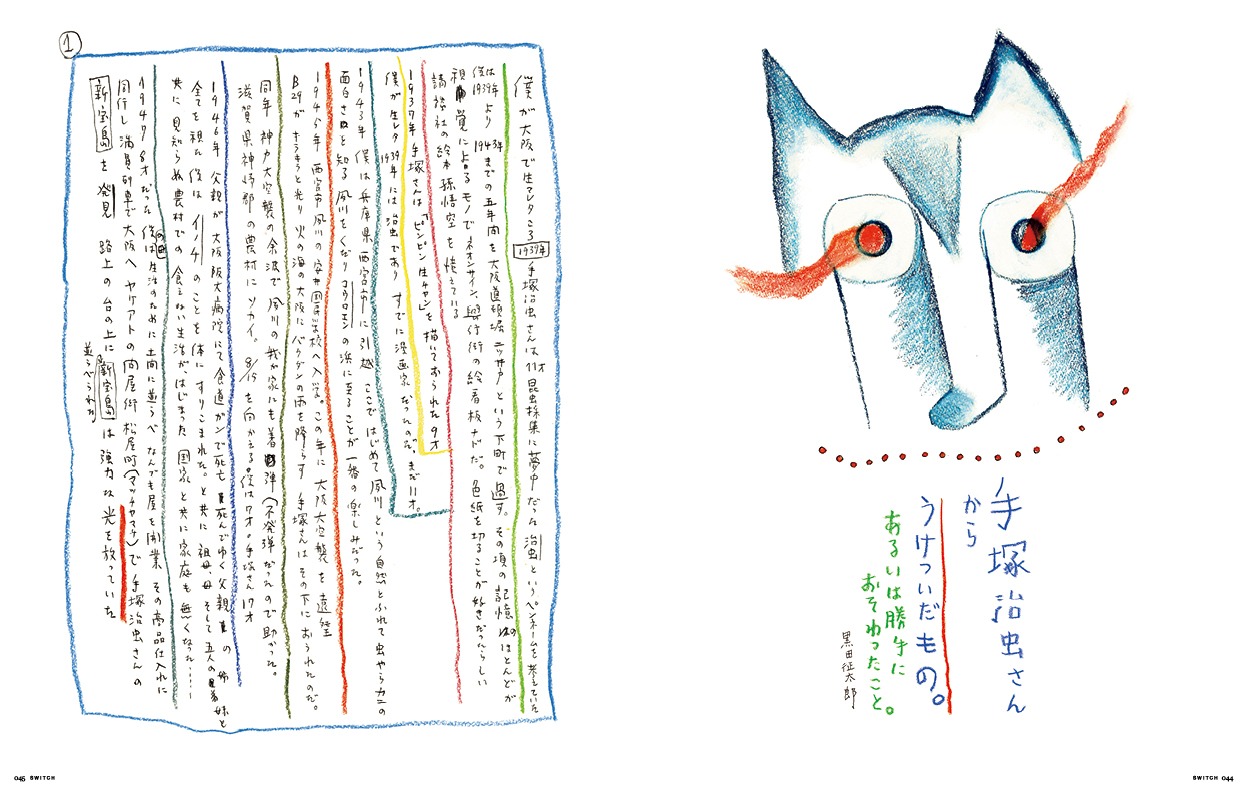 手塚治虫さん
から
うけついだもの。
あるいは勝手に
おそわったこと。
黒田征太郎
SWITCH 044
1
僕が大阪で生レタころ 1939年 手塚治虫さんは11才 昆虫採集に夢中だった 治虫というペンネームを考えていた
僕は1939年より1943年までの五年間を大阪道頓堀 二ッ井戸という下町で過す。その頃の記憶のほとんどが
視覚によるモノで ネオンサイン、興行街の絵看板ナドだ。色紙を切ることが好きだったらしい
講談社の絵本 孫悟空を憶えている
1937年 手塚さんは「ピンピン生チャン」を描いておられた 9才
僕が生レタ1939年には治虫であり すでに漫画家だったのだ、まだ11才。
1943年 僕は兵庫県西宮市に引越 ここではじめて夙川という自然とふれて虫やらカニの
面白さを知る 夙川をくだり コウロエンの浜に至ることが一番の楽しみだった。
1945年 西宮市夙川の安井国民学校へ入学。この年に大阪大空襲を遠望
B29が キラキラと光り 火の海の大阪にバクダンの雨を降らす 手塚さんはその下におられたのだ。
同年 神戸大空襲の余波で 夙川の我が家にも着弾(不発弾だったので助かった。
滋賀県神崎郡の農村にソカイ。8/15を向かえる。僕は7才。手塚さん17才
1946年 父親が大阪 阪大病院にて食道ガンで死亡 死んでゆく父親の姉
全てを視た僕は イノチのことを体にすりこまれた。と共に 祖母、母 そして五人の弟妹と
共に見知らぬ農村での食えない生活が、はじまった 国家と共に家庭も無くなった……
1947 8才だった僕は生活のために土間に並らべ なんでも屋を開業 その商品仕入れに
同行し 満員列車で大阪へ ヤケアトの問屋街 松屋町(マッチャマチ)で手塚治虫さんの
新宝島を発見 路上の台の上に並らべられた新宝島は強力な光を放っていた
045 SWITCH